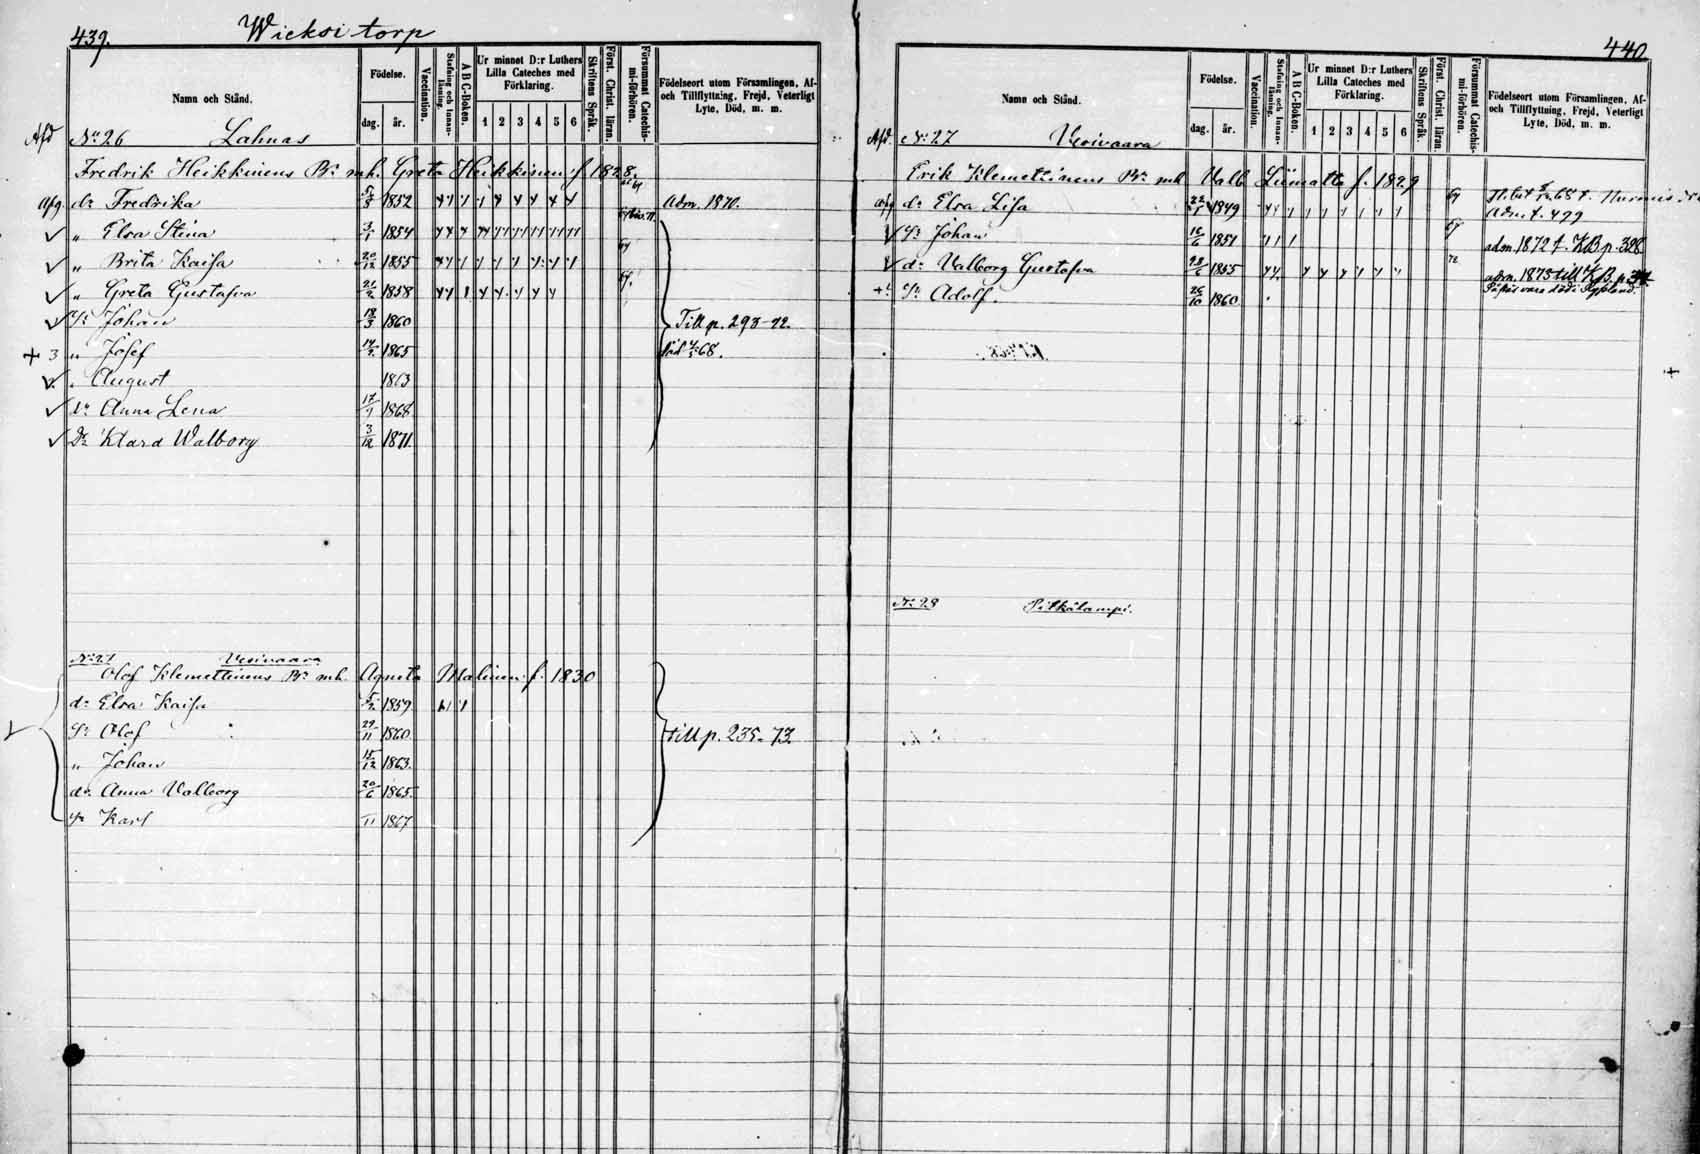 439.
Wieksi torp
Namn och Stånd.
Födelse.
dag. år.
Vaccination.
Stafning och Innan-läsning.
A B C-Boken.
Ur minnet D:r Luthers Lilla Cateches med Förklaring.
1 2 3 4 5 6
Skriftens Språk.
Först. Christ. läran.
Försummat Catechis-mi-förhören.
Födelseort utom Församlingen, Af- och Tillflyttning, Frejd, Veterligt Lyte, Död, m. m.
Afd No 26 Lahnas
Fredrik Heikkinens Br mh. Greta Heikkinen f. 1828.
Afg. dr Fredrika 5/5 1852 Adm. 1870.
" Elsa Stina 3/1 1854
" Brita Kaisa 20/12 1855
" Greta Gustafva 21/2 1858
Sr Johan 18/3 1860 Till p. 293-72.
+ 3 " Josef 14/2 1865 68.
" August 1863
dr Anna Lena 17/1 1868
Dr Klara Walborg 3/12 1871.
No 27 Vesivaara
Olof Klemettinens Br mh. Agneta Malinen f. 1830
dr Elsa Kaisa 5/2 1859
Sr Olof 29/11 1860 till p. 235-73.
" Johan 15/12 1863.
dr Anna Valborg 20/6 1865.
Sr Karl 11 1867
440.
Namn och Stånd.
Födelse.
dag. år.
Vaccination.
Stafning och Innan-läsning.
A B C-Boken.
Ur minnet D:r Luthers Lilla Cateches med Förklaring.
1 2 3 4 5 6
Skriftens Språk.
Först. Christ. läran.
Försummat Catechis-mi-förhören.
Födelseort utom Församlingen, Af- och Tillflyttning, Frejd, Veterligt Lyte, Död, m. m.
Afd. No 27 Vesivaara
Erik Klemettinens Br mh Valb. Liimatta f. 1829
afg dr Elsa Lisa 22/1 1849 Adm. f. 499
Sr Johan 16/6 1851 adm. 1872 f. KB p. 328
dr Valborg Gustafva 28/6 1855 adm. 1873 till KB p.
+ Sr Adolf. 26/10 1860
No 28 Pitkälampi.